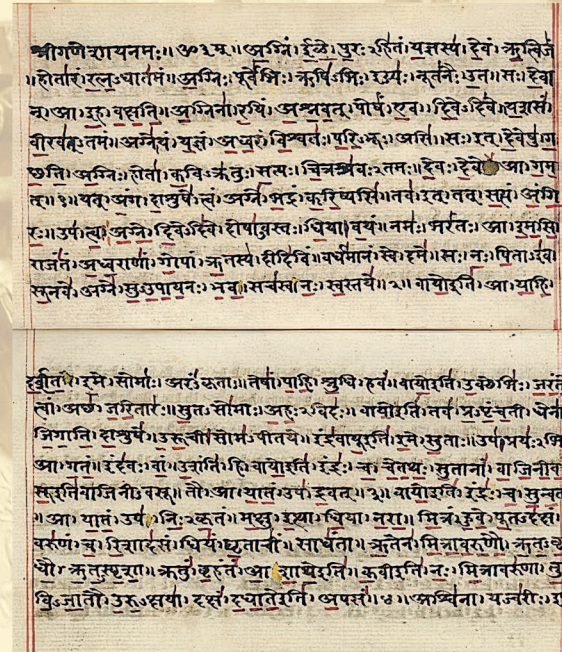 श्रीगणेशायनमः॥ॐ३म्॥अग्निं।ईळे।पुरःऽहितं।यज्ञस्य।देवं।ऋत्विजं
॥होतारं।रत्नऽधातमं॥अग्निः।पूर्वेभिः।ऋषिऽभिः।ईड्यः।नूतनैः।उत॥सः।देवा
न्।आ।इह।वक्षति॥अग्निना।रयिं।अश्नवत्।पोषं।एव।दिवेऽदिवे॥यशसं
वीरवत्ऽतमं॥अग्ने।यं।यज्ञं।अध्वरं।विश्वतः।परिऽभूः।असि॥सः।इत्।देवेषु।ग
च्छति।अग्निः।होता।कविऽक्रतुः।सत्यः।चित्रश्रवःऽतमः॥देवः।देवे।आ।गम
त्॥१॥यत्।अंग।दाशुषे।त्वं।अग्ने।भद्रं।करिष्यसि॥तव।इत्।तत्।सत्यं।अंगि
रः॥उप।त्वा।अग्ने।दिवेऽदिवे।दोषाऽवस्तः।धिया।वयं॥नमः।भरंतः।आ।इमसि
राजंतं।अध्वराणां।गोपां।ऋतस्य।दीदिविं॥वर्धमानं।स्वे।दमे॥सः।नः।पिताऽइव
सूनवे।अग्ने।सुऽउपायनः।भव॥सचस्व।नः।स्वस्तये॥२॥वायोइति।आ।याहि।
दर्शत।इमे।सोमाः।अरंऽकृताः॥तेषां।पाहि।श्रुधि।हवं॥वायोइति।उक्थेभिः।जरंते
त्वां।अच्छ।जरितारः॥सुतऽसोमाः।अहःऽविदः॥वायोइति।तव।प्रऽपृंचती।धेना
जिगाति।दाशुषे॥उरूची।सोमऽपीतये॥इंद्रवायूइति।इमे।सुताः॥उप।प्रयःऽभिः
आ।गतं॥इंदवः।वां।उशंति।हि॥वायोइति।इंद्रः।च।चेतथः।सुतानां।वाजिनीव
सूइतिवाजिनीऽवसू॥तौ।आ।यातं।उप।द्रवत्॥३॥वायोइति।इंद्रः।च।सुन्वतः
॥आ।यातं।उप।निःऽकृतं॥मक्षु।इत्था।धिया।नरा॥मित्रं।हुवे।पूतऽदक्षं।
वरुणं।च।रिशादसं॥धियं।घृताचीं।साधंता॥ऋतेन।मित्रावरुणौ।ऋतऽवृ
धौ।ऋतऽस्पृशा॥क्रतुं।बृहंतं।आशाथेइति॥कवीइति।नः।मित्रावरुणा।तु
विऽजातौ।उरुऽक्षया॥दक्षं।दधातेइति।अपसं॥४॥अश्विना।यज्वरीः।इ